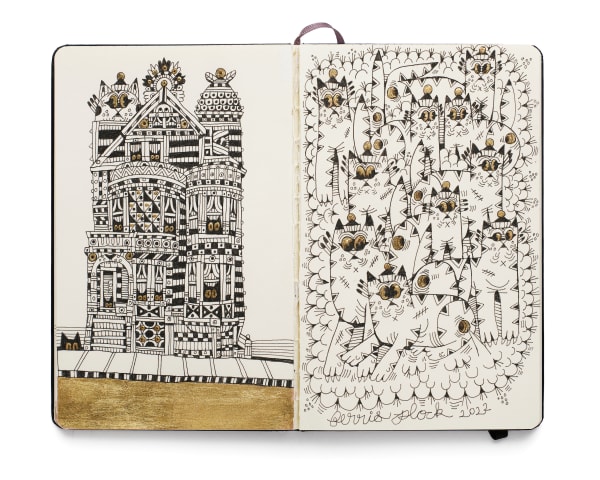 ferris plock 2022